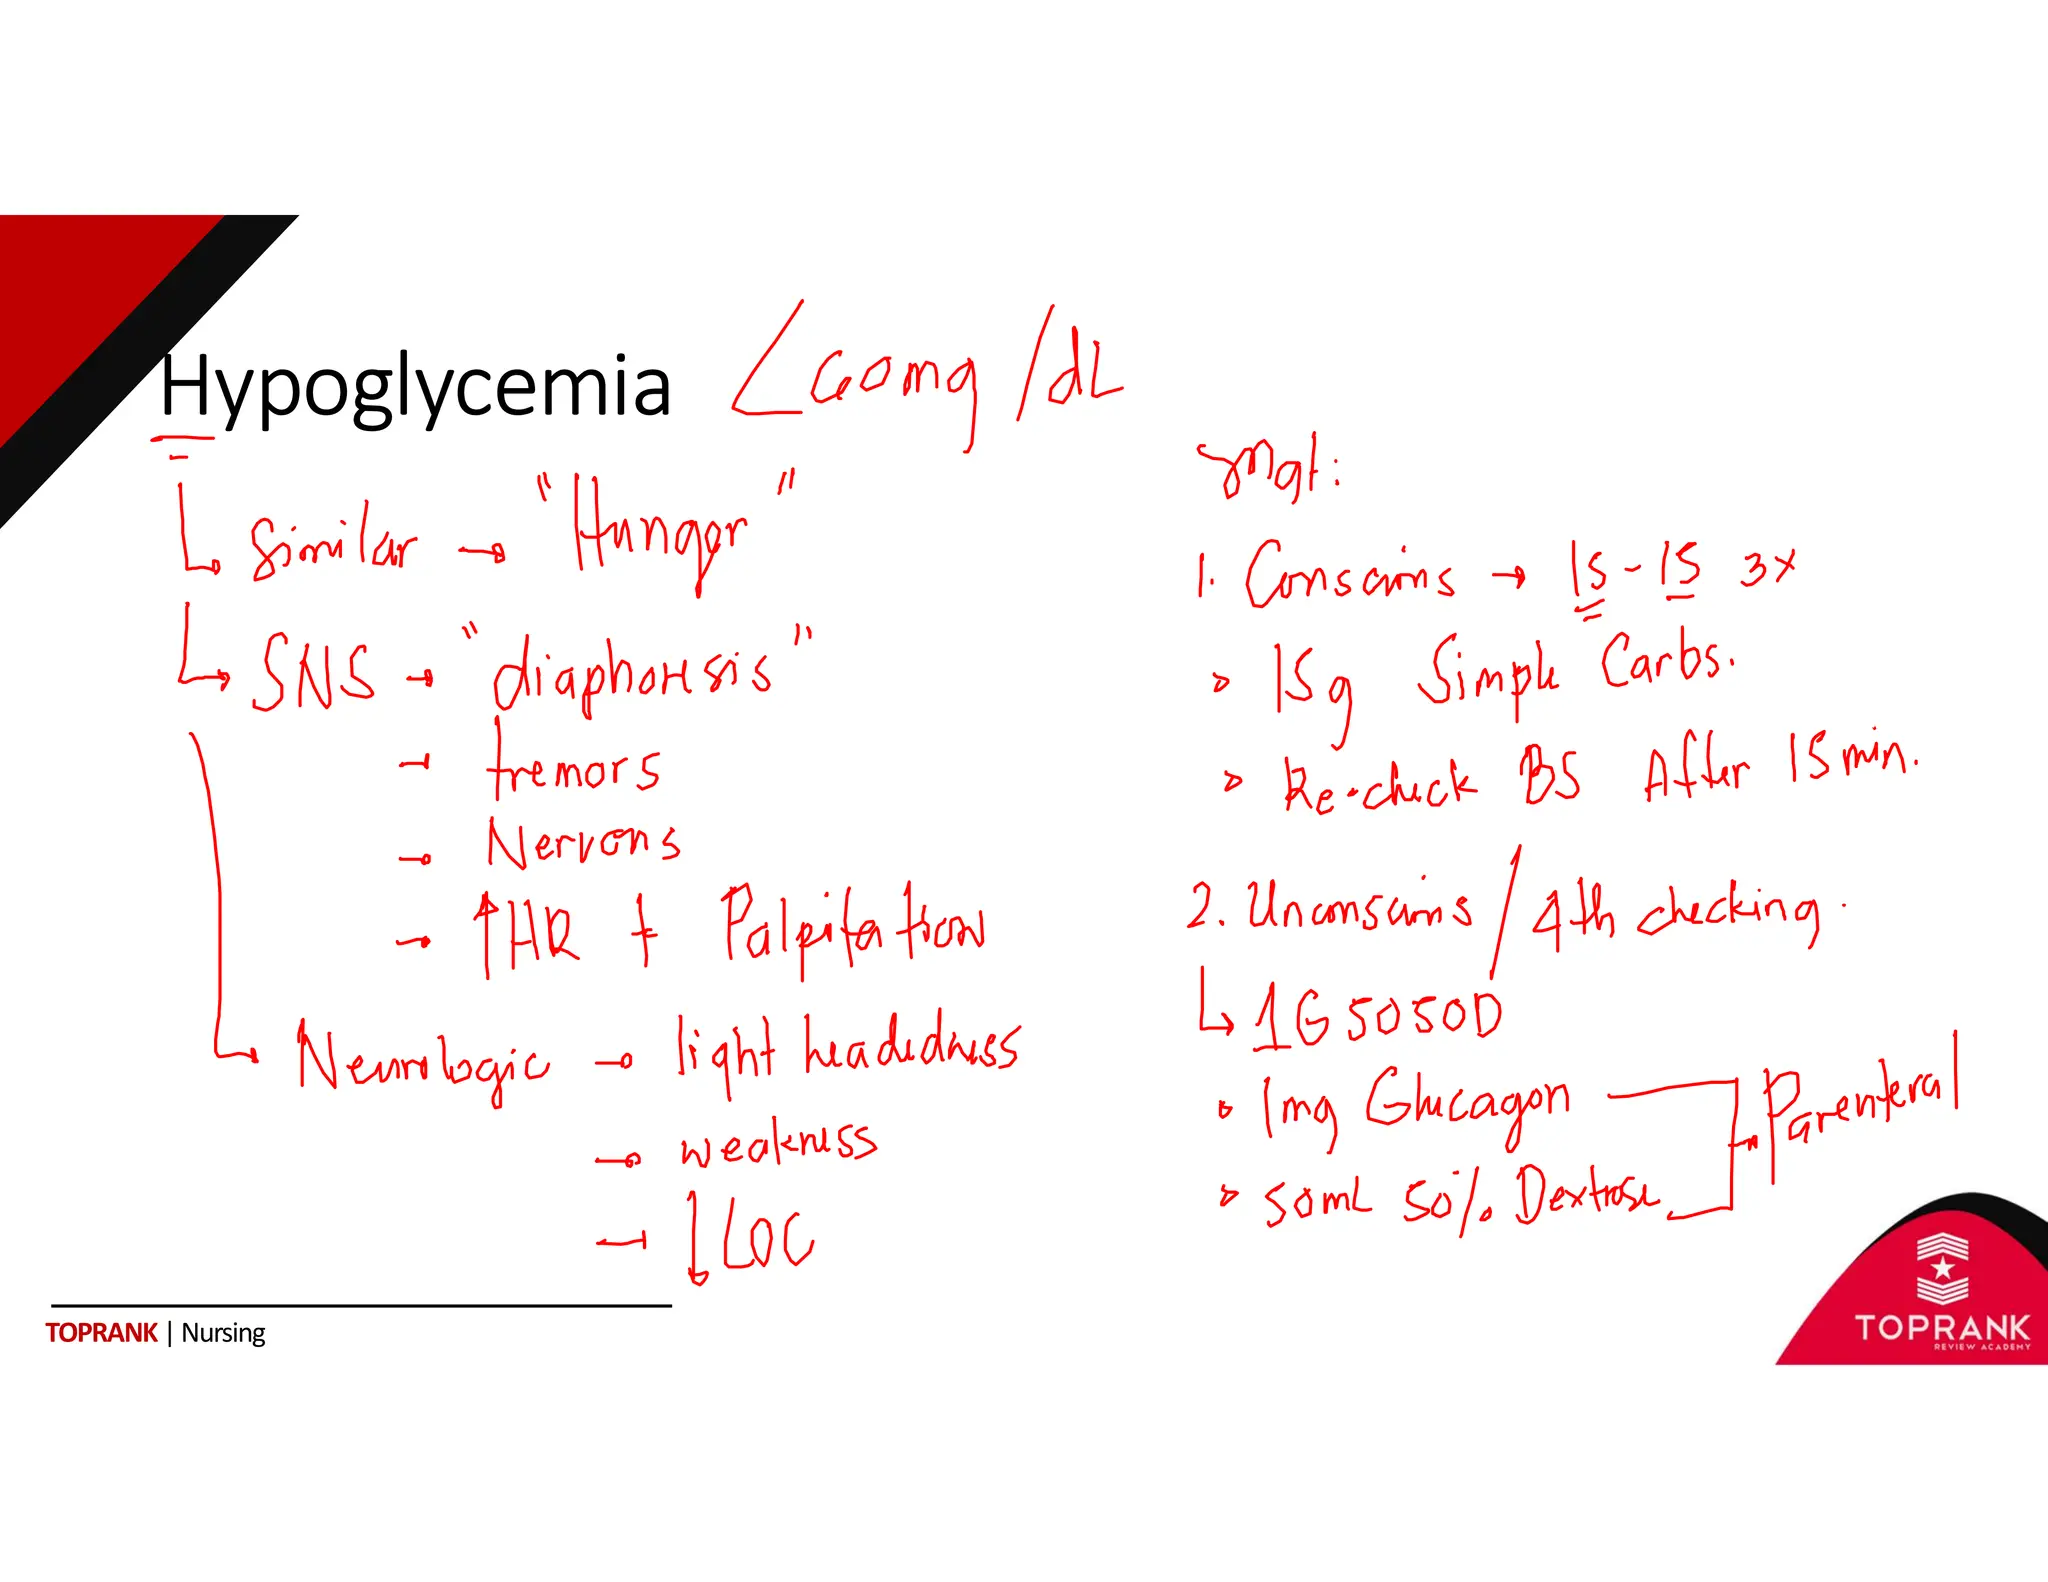 Hypoglycemia <60mg/dL
↳ similar → "Hunger"
↳ SNS → "diaphoresis"
→ tremors
→ Nervous
→ ↑HR + Palpitation
↳ Neurologic → light headedness
→ weakness
→ ↓LOC
Mgt:
1. Conscious → 15-15 3x
• 15g Simple Carbs.
• Re-check BS After 15min.
2. Unconscious / 4th checking.
↳ 1G5050D
• 1mg Glucagon
• 50mL 50% Dextrose
→ Parenteral
TOPRANK | Nursing
TOPRANK
REVIEW ACADEMY